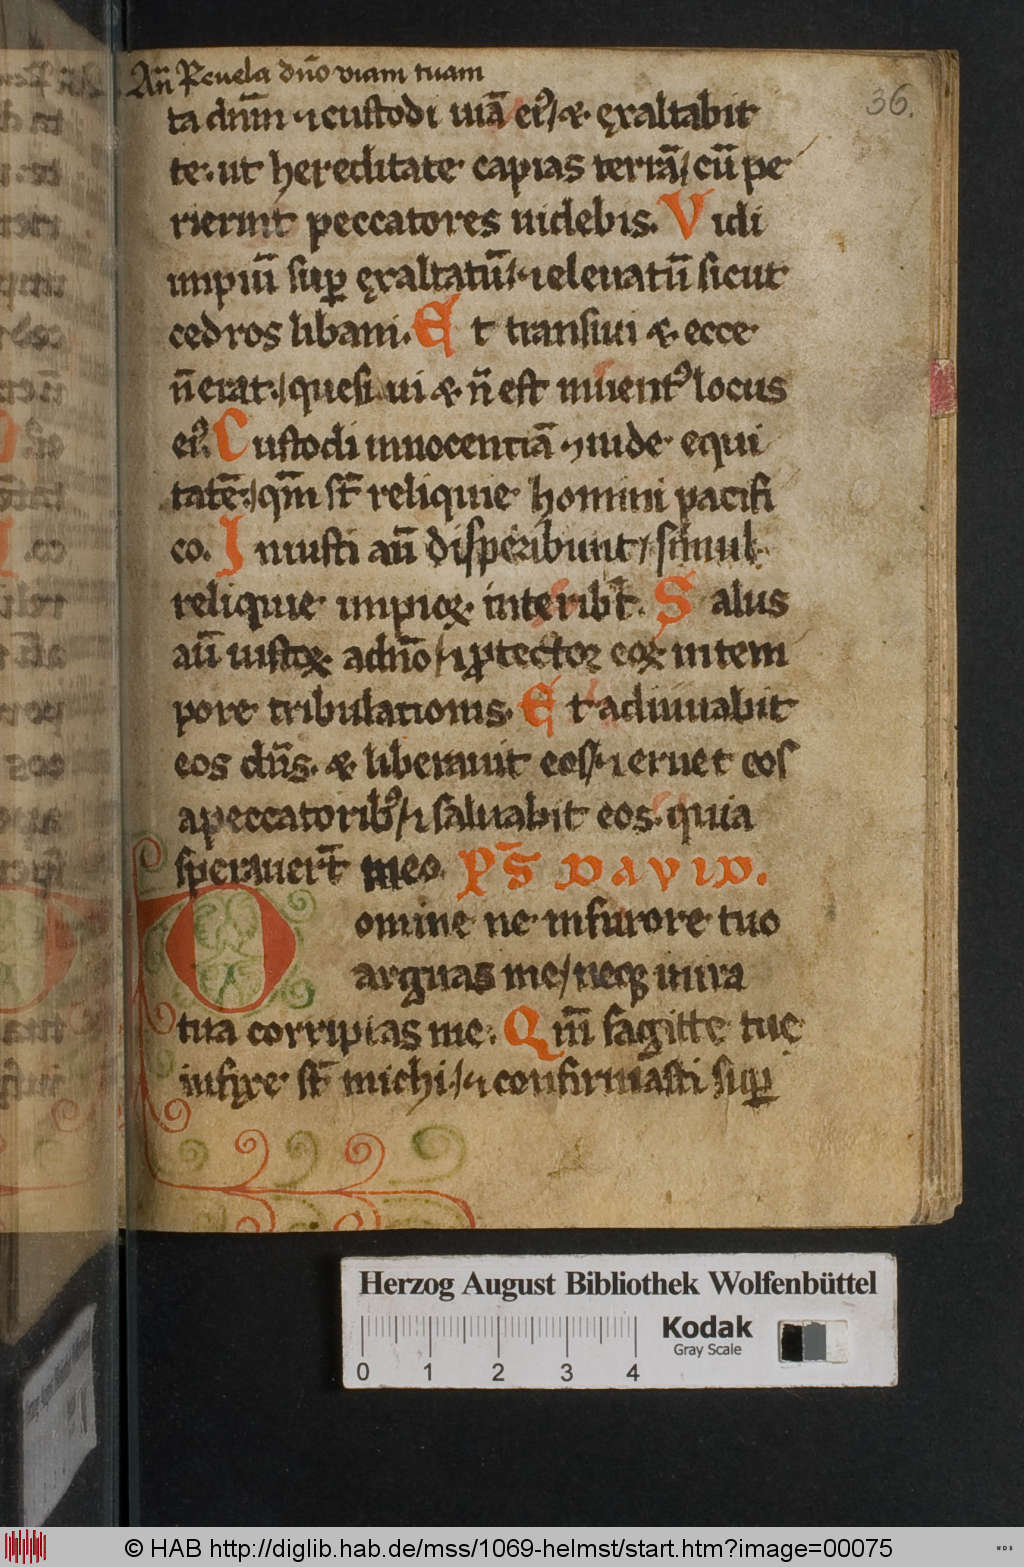 Añ Reuela dño viam tuam
36.
ta dnm̄ ⁊ custodi uiā eiꝰ / & ęxaltabit
te. ut hereditate capias terrā / cū pe
rierint peccatores uidebis. Vidi
impiū suꝑ ęxaltatū / ⁊ eleuatū sicut
cedros libani. Et transiui & ecce
n̄ erat. / quesi ui & n̄ est inuentꝰ locus
eiꝰ. Custodi innocentiā ⁊ uide equi
tatē. / qm̄ st̄ reliquie homini pacifi
co. Iniusti aū disperibunt / simul
reliquie impioꝝ interibt̄. Salus
aū iustoꝝ adn̄o / ⁊ ꝓtector eoꝝ intem
pore tribulationis. Et adiuuabit
eos dn̄s. & liberauit eos / ⁊ eruet eos
apeccatoribꝰ / ⁊ saluabit eos. quia
sperauert̄ ineo. P̄S DAVID.
Domine ne infurore tuo
arguas me / neqꝫ inira
tua corripias me. Qm̄ sagitte tuę
infixe st̄ michi. / ⁊ confirmasti suꝑ
Herzog August Bibliothek Wolfenbüttel
Kodak
Gray Scale
0 1 2 3 4
© HAB http://diglib.hab.de/mss/1069-helmst/start.htm?image=00075